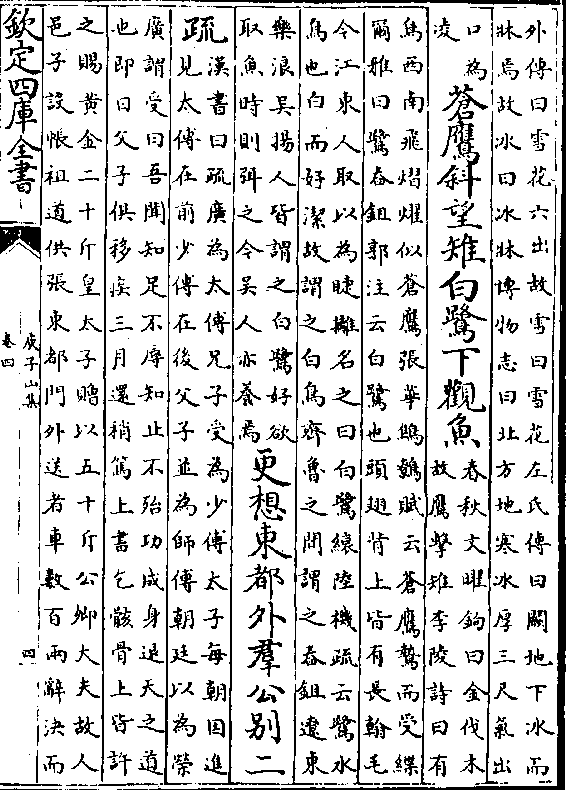 外傳曰雪花六出故雪曰雪花左氏傳曰闕地下冰而
牀焉故冰曰冰牀博物志曰北方地寒冰厚三尺氣出
口為
凌
蒼鷹斜望雉白鷺下觀魚
春秋文曜鉤曰金伐木
故鷹擊雉李陵詩曰有
鳥西南飛熠燿似蒼鷹張華鷦鷯賦云蒼鷹鷙而受緤
爾雅曰鷺舂鉏郭注云白鷺也頭翅背上皆有長翰毛
今江東人取以為睫攡名之曰白鷺縗陸機疏云鷺水
鳥也白而好潔故謂之白鳥齊魯之間謂之舂鉏遼東
樂浪吳揚人皆謂之白鷺好欲
取魚時則弭之今吳人亦養焉
更想東都外羣公别二
疏
漢書曰疏廣為太傅兄子受為少傅太子每朝因進
見太傅在前少傅在後父子並為師傅朝廷以為榮
廣謂受曰吾聞知足不辱知止不殆功成身退天之道
也即日父子俱移疾三月還稍篤上書乞骸骨上皆許
之賜黄金二十斤皇太子贈以五十斤公卿大夫故人
邑子設帳祖道供張東都門外送者車數百兩辭決而
欽定四庫全書
庾子山集
卷四
四